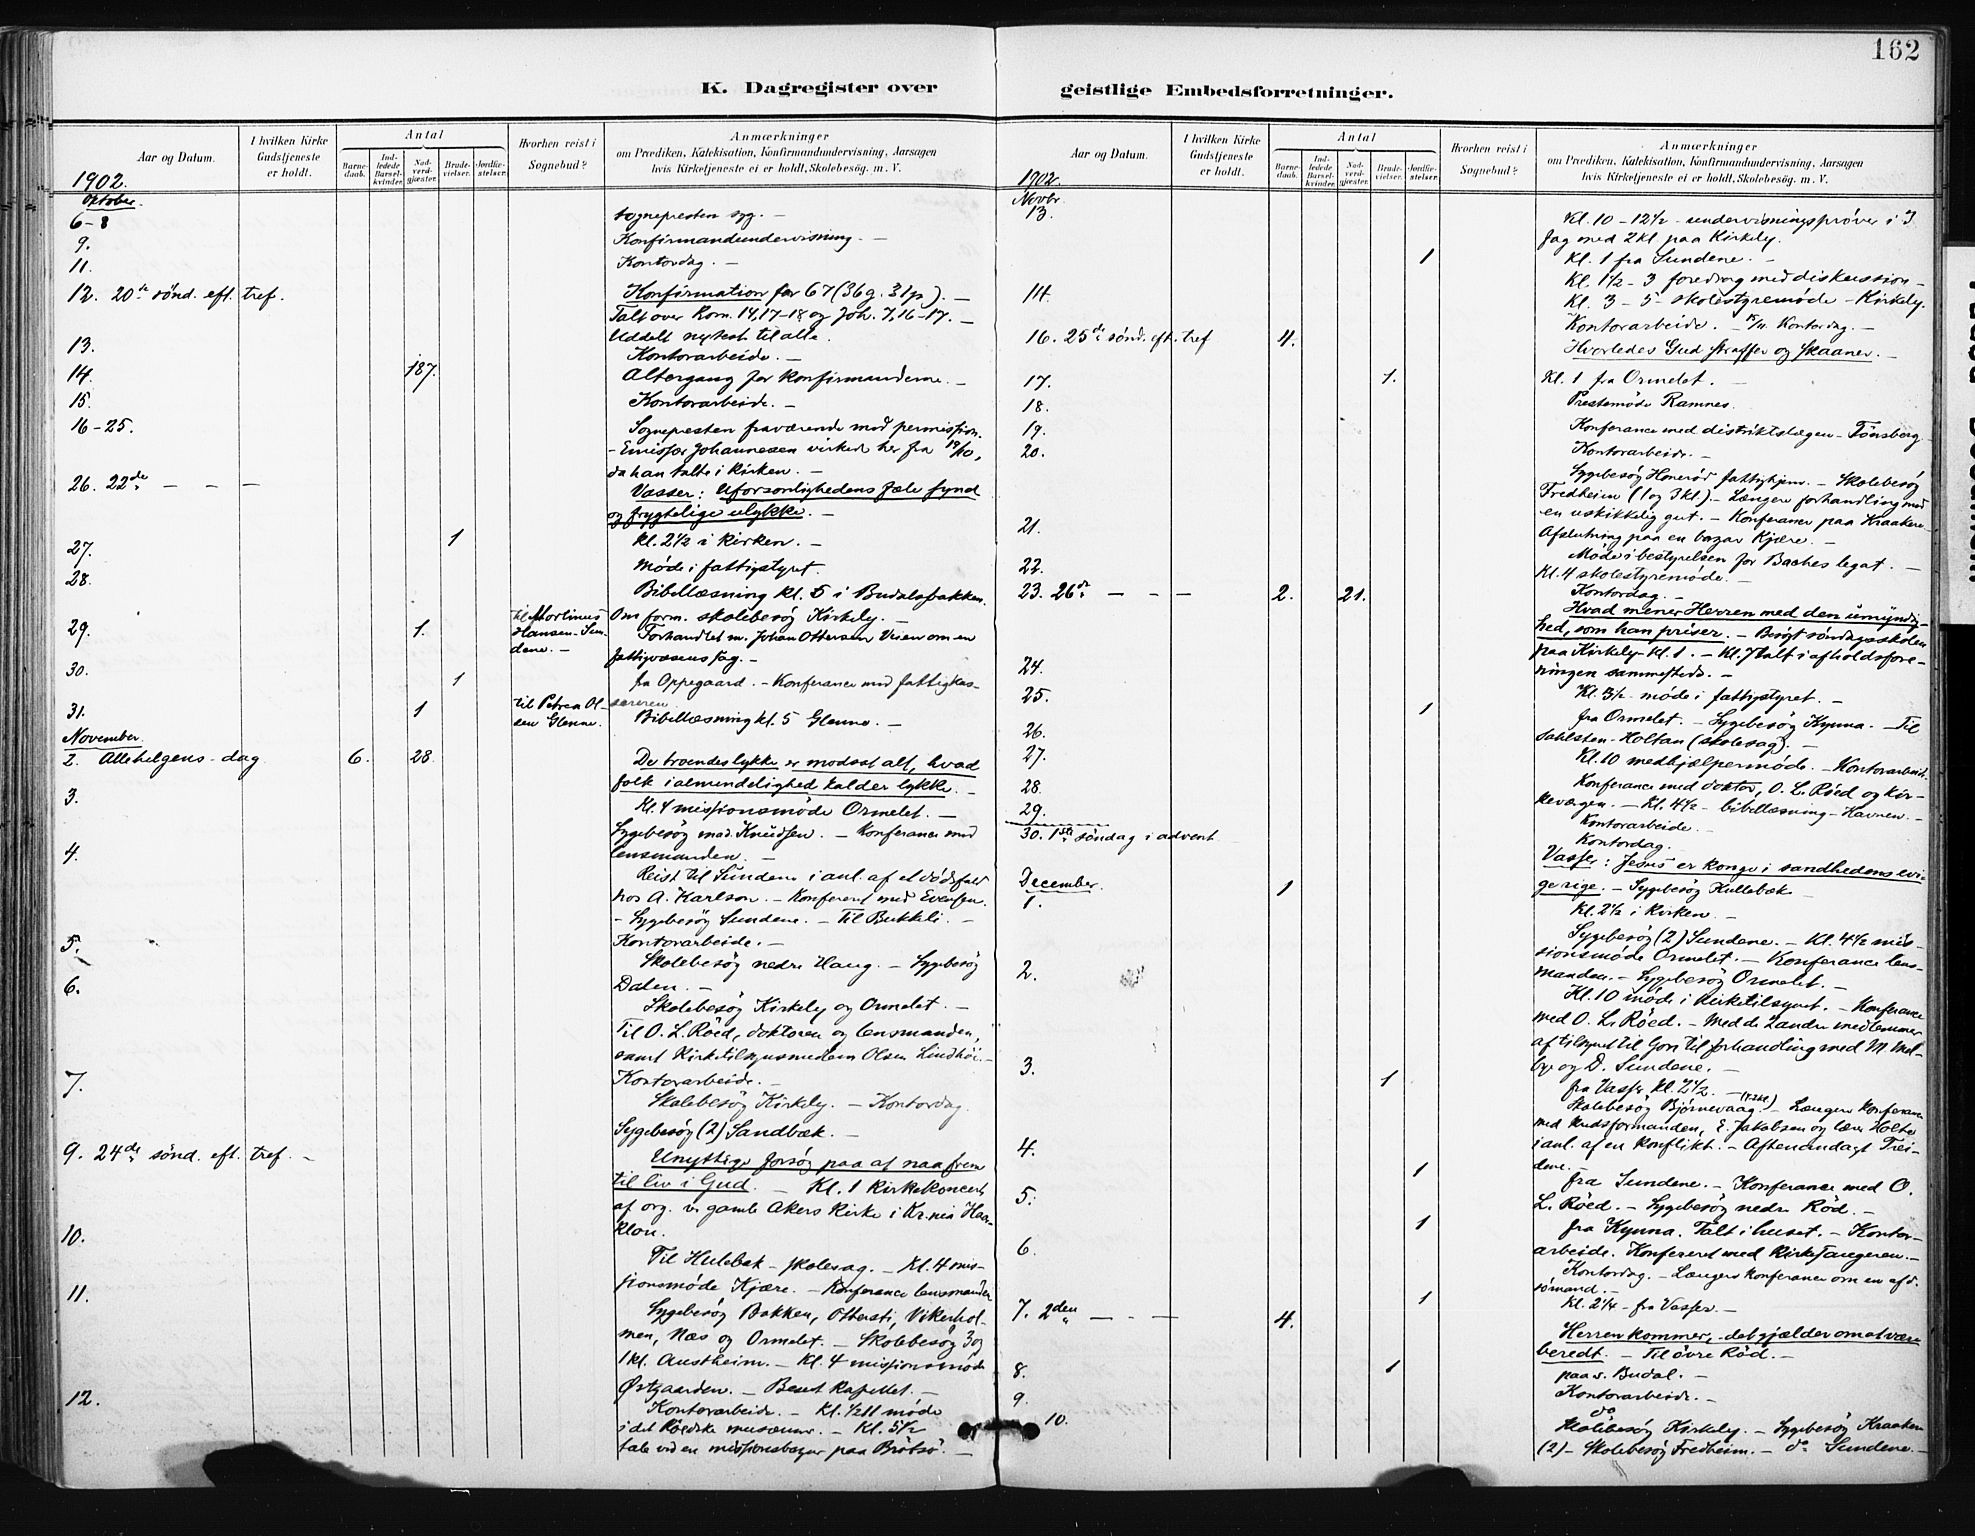 162
K. Dagregister over geistlige Embedsforretninger.
Aar og Datum.
I hvilken Kirke Gudstjeneste er holdt.
Antal
Barnedaab.
Indledede Barselkvinder.
Nadverdgjæster.
Brudevielser.
Jordfæstelser.
Hvorhen reist i Sognebud?
Anmærkninger
om Prædiken, Katekisation, Konfirmandundervisning, Aarsagen
hvis Kirketjeneste ei er holdt, Skolebesøg. m. V.
1902.
Oktober.
6-8 Sognepresten syg. -
9. Konfirmandundervisning. -
11. Kontordag. -
12. 20de sönd. eft. tref. Konfirmation for 67 (36 g. 31 p). -
Talt over Rom. 14,17-18 og Joh. 7,16-17. -
Uddelt nytest. til alle.
13. Kontorarbeide. -
14. 187. Altergang for konfirmanderne. -
15. Kontorarbeide. -
16-25. Sognepresten fraværende med permission.
- Emissær Johannesen virkede her fra 19/10,
da han talte i kirken. -
26. 22de - - - Vasser: Uforsonlighedens fæle synd
og frygtelige ulykke. -
27. 1 Kl. 2 1/2 i kirken. -
28. Möde i fattigstyret.
Bibellæsning kl. 5 i Budalsbakken.
29. 1. til Martinus Hansen Sundene. - Om form. skolebesög Kirkely. -
Forhandlet m. Johan Ottersen Veien om en
fattigvæsens sag. -
30. 1 fra Oppegaard. - Konferance med fattigkassereren.
31. 1 til Petrea Olsen Glenne. Bibellæsning kl. 5 Glenne. -
November.
2. Allehelgens-dag 6. 28. De troendes lykke er modsat alt, hvad
folk i almindelighed kalder lykke. -
3. Kl. 4 missionsmöde Ormelet. -
Sygebesög mad. Knudsen. - Konferance med
lensmanden. -
4. Reist til Sundene i anl. af et dödsfald
hos A. Karlson. - Konfereret med Evensen.
- Sygebesög Sundene. - Til Bekkeli.
5. Kontorarbeide. -
Skolebesög nedre Haug. - Sygebesög
6. Dalen. -
Skolebesög Kirkely og Ormelet. -
Til O. L. Röed, doktoren og lensmanden,
samt kirketilsynsmedlem Olsen Lindhöi. -
7. Kontorarbeide. -
Skolebesög Kirkely. - Kontordag.
Sygebesög (2) Sandbæk. -
9. 24de sönd. eft. tref. - Unyttige forsög paa at naa frem
til liv i Gud. - Kl. 1 kirkekoncert
af org. v. gamle Akers kirke i Kr.nia Haarklou.
10. Til Hulebak - skolesag. - Kl. 4 missionsmöde Kjære. - Konferance lensmanden
11. Sygebesög Bakken, Ottersti, Vikerholmen, Næs og Ormelet. - Skolebesög 3 og
1 kl. Austheim. - Kl. 4 missionsmöde
Østgaarden. - Beset kapellet. -
12. Kontorarbeide. - Kl. 1/2 11 möde
i det Röedske musæum. - Kl. 5 1/2
tale ved en missionsbazar paa Brötsö. -
Aar og Datum.
I hvilken Kirke Gudstjeneste er holdt.
Antal
Barnedaab.
Indledede Barselkvinder.
Nadverdgjæster.
Brudevielser.
Jordfæstelser.
Hvorhen reist i Sognebud?
Anmærkninger
om Prædiken, Katekisation, Konfirmandundervisning, Aarsagen
hvis Kirketjeneste ei er holdt, Skolebesøg. m. V.
1902.
Novbr.
13. Kl. 10-12 1/2 - undervisningsprøver i 3
fag med 2 kl. paa Kirkely.
1 Kl. 1 fra Sundene. -
Kl. 1 1/2-3 foredrag med diskussion -
Kl. 3-5 - skolestyremöde - Kirkely.
14. Kontorarbeide. - 15/11. Kontordag. -
16. 25de sönd. eft. tref 4. Hvorledes Gud straffer og skaaner. -
17. 1. Kl. 1 fra Ormelet. -
18. Prestemöde Ramnes.
19. Konferance med distriktslægen - Tönsberg
20. Kontorarbeide. -
Sygebesög Honeröd fattighjem. - Skolebesög
Fredheim (1 og 3 kl.) - Længere forhandling med
en uskikkelig gut. - Konferance paa Kraakere
21. Afslutning paa en bazar Kjære. -
Möde i bestyrelsen for Baches legat. -
22. Kl. 4 skolestyremöde. -
Kontordag. -
23. 26de - - - 2. 21. Hvad mener Herren med den umyndighed, som han priser. - Besögt söndagsskolen
paa Kirkely kl. 1. - Kl. 7 talt i afholdsforeningen sammesteds. -
24. Kl. 3 1/2 - möde i fattigstyret. -
25. 1 fra Ormelet. - Sygebesög Kynna. - Til
Sahlsten - Holtan (skolesag). -
26. Kl. 10 medhjælpermöde. - Kontorarbeid.
27. Konferance med doktor, O. L. Röed og kirkeværgen. - Kl. 4 1/2 - bibellæsning - Havnen. -
28. Kontorarbeide. -
29. Kontordag.
30. 1ste söndag i advent Vasser: Jesus er konge i sandhedens evige rige. - Sygebesög Hullebæk -
December.
1. 1 Kl. 2 1/2 i kirken. -
Sygebesög (2) Sundene. - Kl. 4 1/2 missionsmöde Ormelet. - Konferance lensmanden. - Sygebesög Ormelet. -
2. Kl. 10 möde i kirketilsynet. - Konferance
med O. L. Röed. - Med de andre medlemmer
af tilsynet til Gon til forhandling med M. Melbye og D. Sundene. -
3. 1 fra Vasser kl. 2 1/2. -
Skolebesög Björnevaag (1. 2 kl.) - Længere konferance
med kredsformanden, E. Jakobsen og lærer Holte
i anl. af en konflikt. - Aftenandagt Treidene. -
4. 1 fra Sundene. - Konferance med O.
L. Röed. - Sygebesög nedre Röd. -
5. 1 fra Kynna. Talt i huset. - Kontorarbeide. Konfereret med kirkesangeren. -
6. Kontordag. - Længere konferance om en afd.
sömand. -
1 Kl. 2 1/4 - fra Vasser. -
7. 2den - - - 4. Herren kommer, - det gjælder om at være
beredt. - Til övre Röd. -
8. 1 paa s. Budal. -
9. Kontorarbeide. -
10. do
Skolebesög Kirkely. - Sygebesög Kraakere
(2) - Skolebesög Fredheim. - do Sundene. -